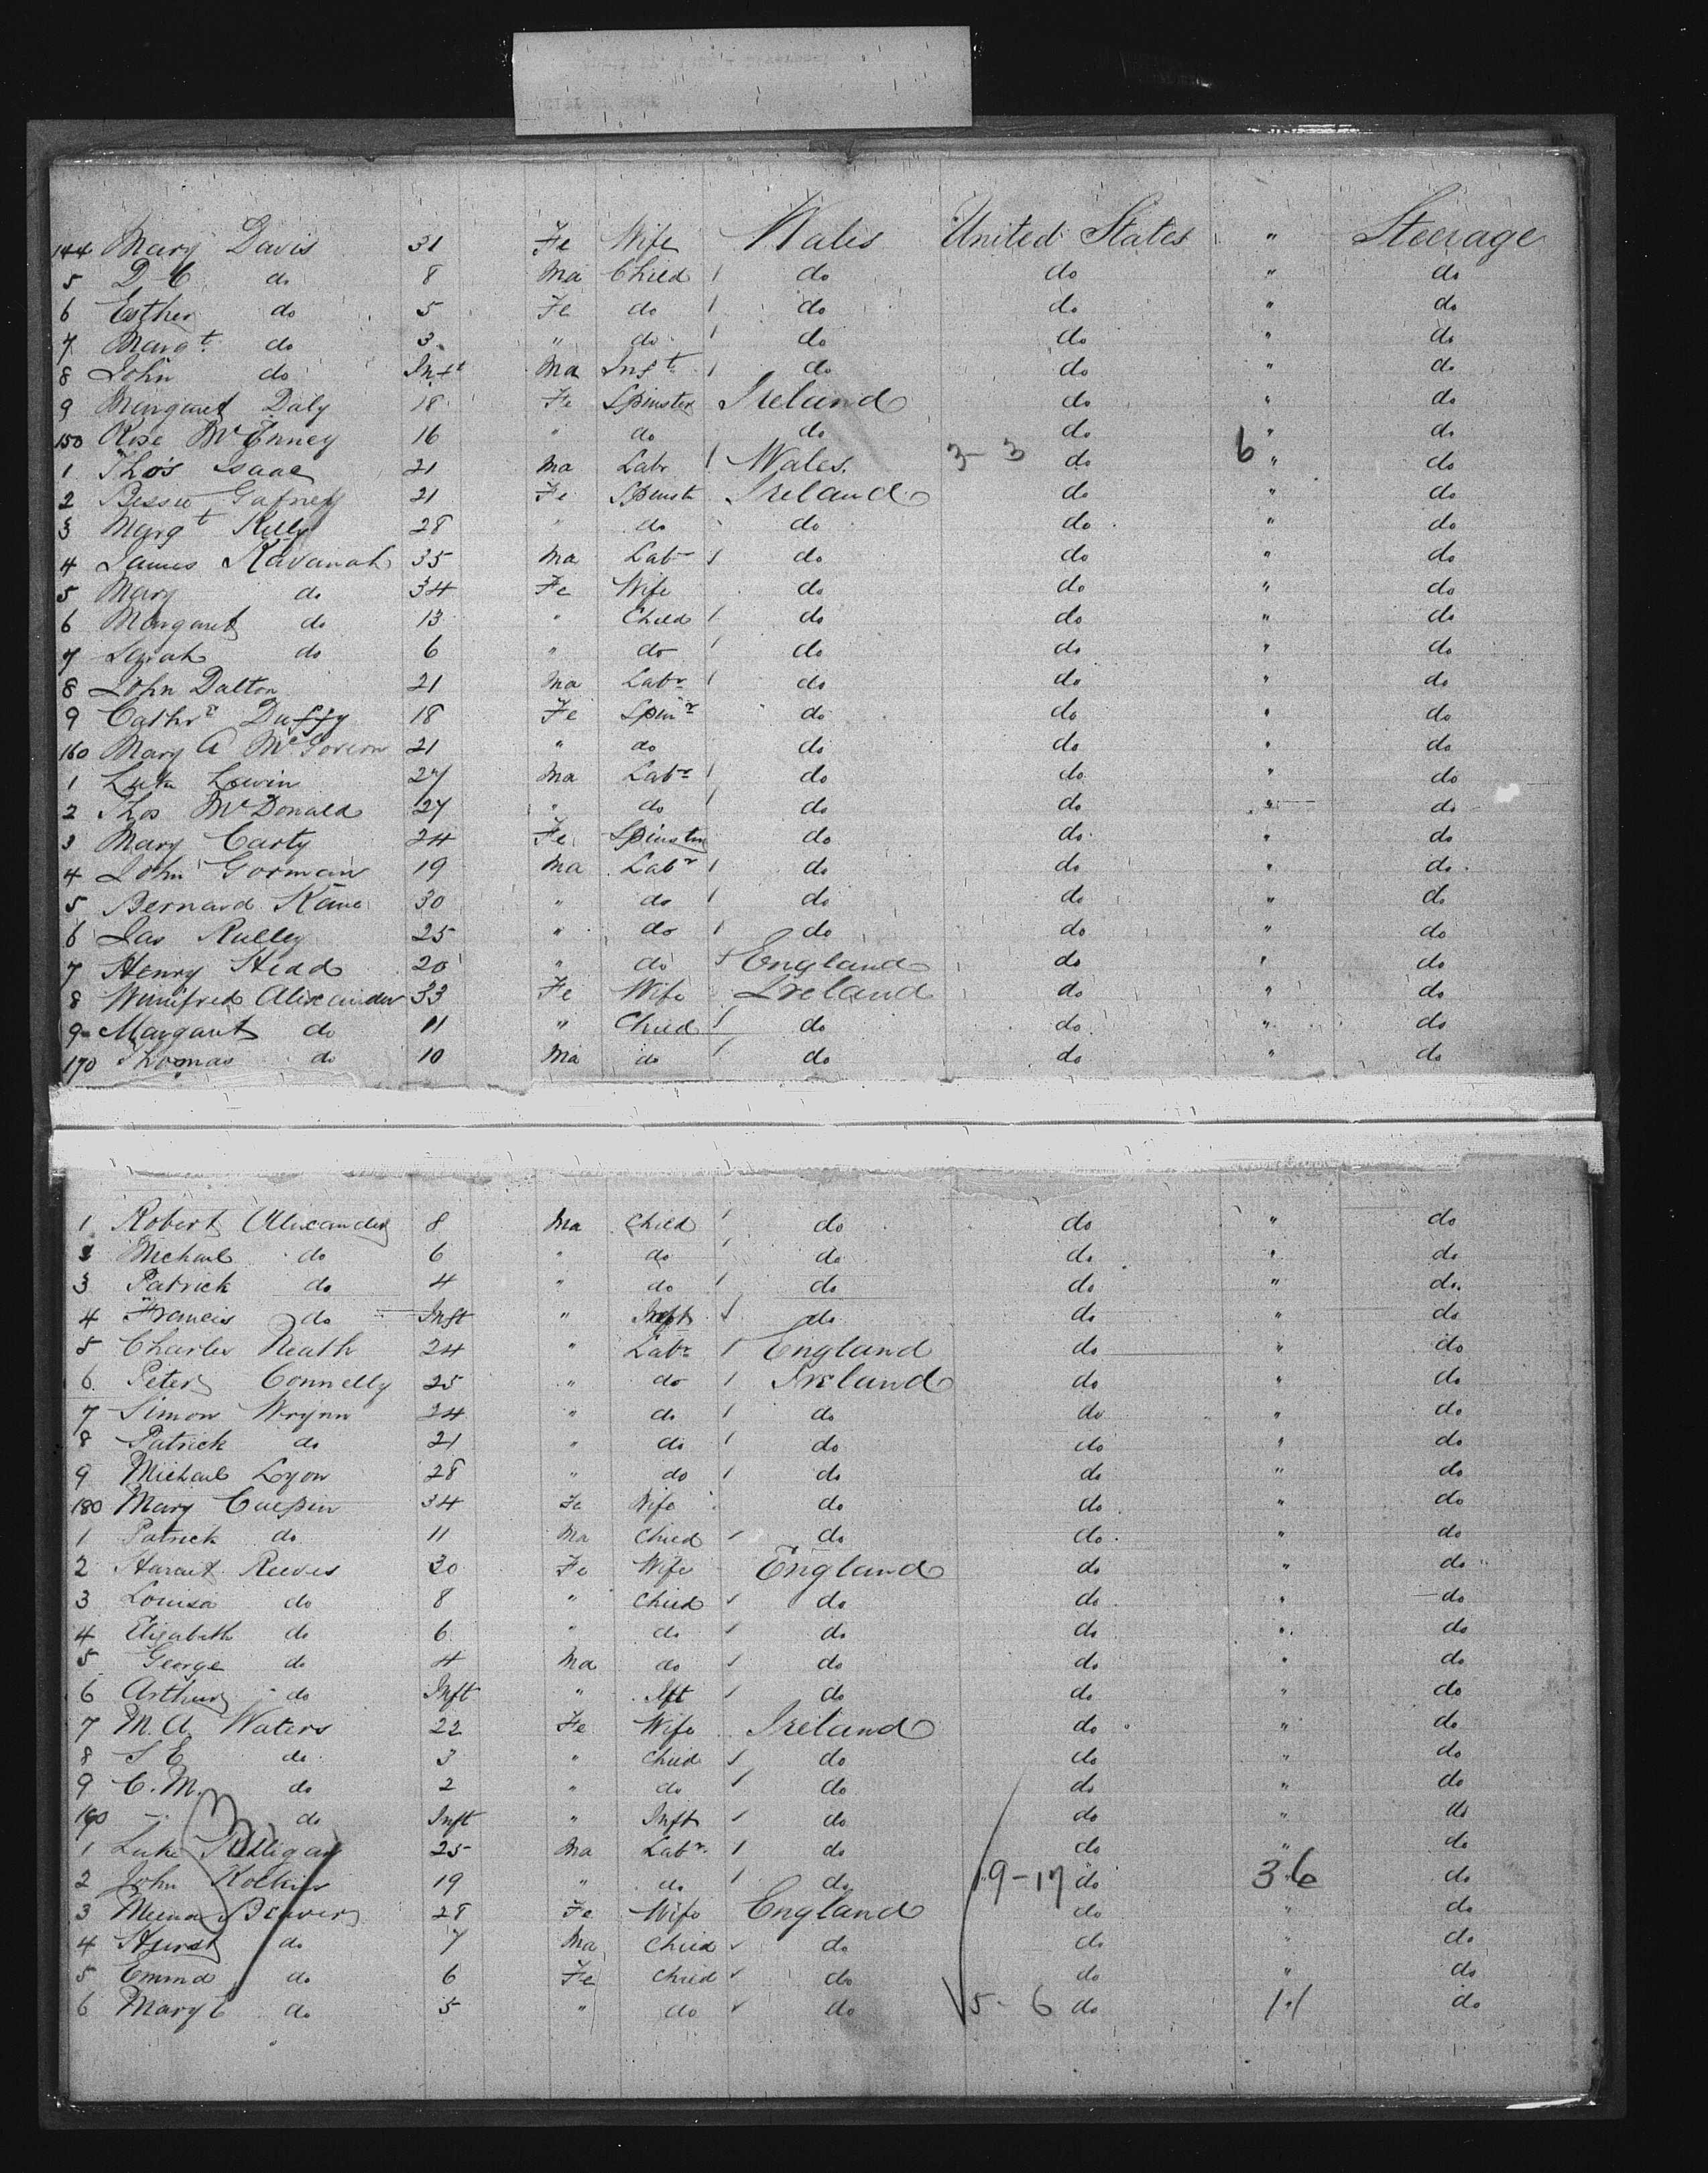 144 Mary Davis 31 Fe Wife Wales United States " Steerage
5 D C do 8 Ma Child / do do " do
6 Esther do 5 Fe do / do do " do
7 Margt. do 3 " do / do do " do
8 John do Inft Ma Inft / do do " do
9 Margaret Daly 18 Fe Spinster Ireland do " do
150 Rose McEnney 16 " do do do " do
1 Thos Isaac 21 Ma Labr / Wales. 3-3 do 6 " do
2 Bessie Gafney 21 Fe Spinstr Ireland do " do
3 Margt Kelly 28 " do do do " do
4 James Kavanah 35 Ma Labr / do do " do
5 Mary do 34 Fe Wife do do " do
6 Margaret do 13 " Child / do do " do
7 Sarah do 6 " do / do do " do
8 John Dalton 21 Ma Labr / do do " do
9 Cathr Duffy 18 Fe Spinr do do " do
160 Mary A McGovern 21 " do do do " do
1 Luke Lewin 27 Ma Labr / do do " do
2 Thos McDonald 27 " do / do do " do
3 Mary Carty 24 Fe Spinster do do " do
4 John Gorman 19 Ma Labr / do do " do
5 Bernard Kane 30 " do / do do " do
6 Jas Rulley 25 " do / do do " do
7 Henry Head 20 " do / England do " do
8 Winnifred Alexander 33 Fe Wife Ireland do " do
9 Margaret do 11 " Child / do do " do
170 Thomas do 10 Ma do / do do " do
1 Robert Alexander 8 Ma Child / do do " do
2 Michael do 6 " do / do do " do
3 Patrick do 4 " do / do do " do
4 Francis do Inft " Inft / do do " do
5 Charles Neath 24 " Labr / England do " do
6 Peter Connelly 25 " do / Ireland do " do
7 Simon Wrynn 24 " do / do do " do
8 Patrick do 21 " do / do do " do
9 Michael Lyon 28 " do / do do " do
180 Mary 34 Fe Wife do do " do
1 Patrick do 11 Ma Child / do do " do
2 Harriet Reeves 30 Fe Wife England do " do
3 Louisa do 8 " Child / do do " do
4 Elizabeth do 6 " do / do do " do
5 George do 4 Ma do / do do " do
6 Arthur do Inft " Ift / do do " do
7 M. A. Waters 22 Fe Wife Ireland do " do
8 S E do 3 " Child / do do " do
9 C. M. do 2 " do / do do " do
190 — do Inft " Inft / do do " do
1 Luke 25 Ma Labr / do do " do
2 John 19 " do / do 19-17 do 36 do
3 Beaver 28 Fe Wife England do " do
4 do 7 Ma Child / do do " do
5 Emma do 6 Fe Child / do do " do
6 Mary E do 5 " do / do 5-6 do 11 do